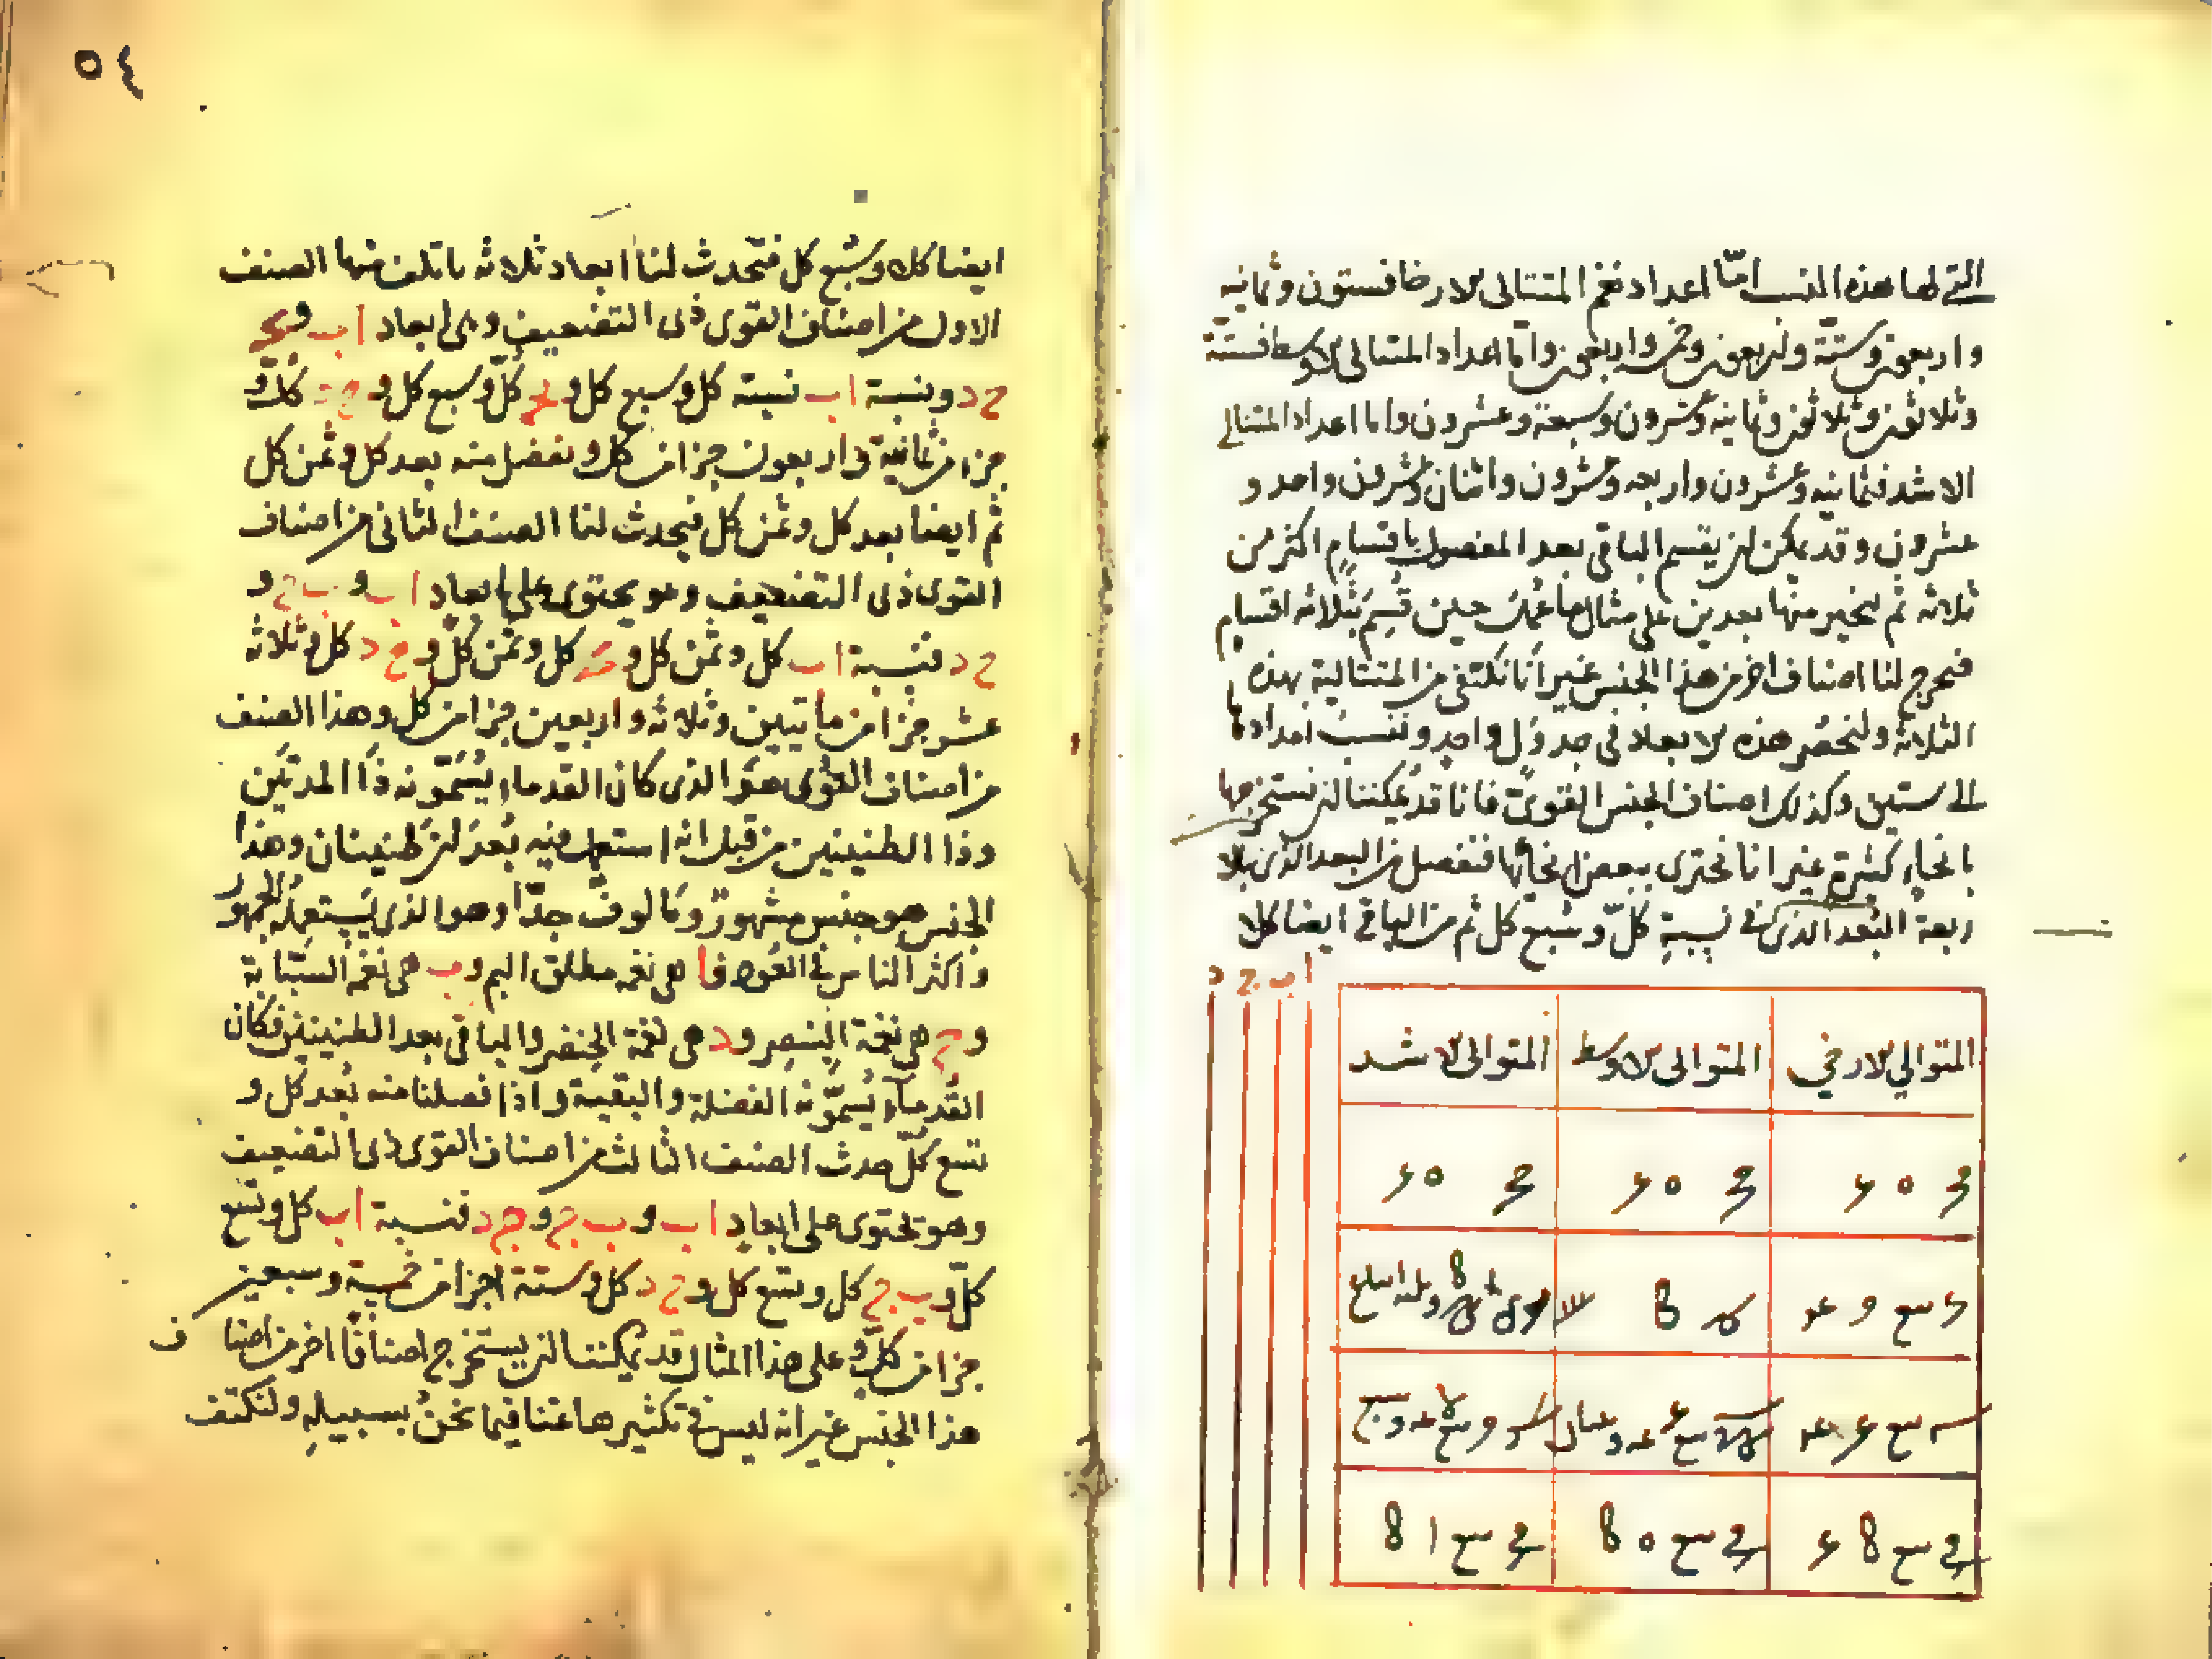 التي لها هذه النسب امّا اعداد نغم المتتالي الارخا فستون وثمانيه
واربعون وستة واربعون وخمسه واربعون واما اعداد المتتالي الاوسط فستة
وثلاثون وثلاثون وثمانيه وعشرون وسبعة وعشرون واما اعداد المتتالي
الاشد فثمانيه وعشرون واربعه وعشرون واثنان وعشرون واحد و
عشرون وقد يمكن ان يقسم الباقي بعد المفصول باقسام اكثر من
ثلاثه ثم نخير منها بعدين على مثال ما عُمل حين قُسِمَ بثلاثه اقسام
فيخرج لنا اصناف اخر من هذا الجنس غير انّا نكتفي من المتتالية بهذه
الثلاثه ولنحصُر هذه الابعاد في جدول واحد وننسب اعدادها
الى ستين وكذلك اصناف الجنس القويّ فانا قد يمكننا ان نستخرجها
بانحاء كثيرة غير انا نجتزى ببعض انحائها فنفصل من البعد الذي بالا
ربعة البُعد الذي في نسبة كلّ وسُبع كل ثم من الباقي ايضا كلا
ا ب ج د
المتوالي الارخي المتوالى الاوسط المتوالى الاشد
٥٤
ايضا كلا وسُبع كل فتحدث لنا ابعاد ثلاثه ياتلف منها الصنف
الاول من اصناف القوى ذى التضعيف وهى ابعاد ا ب و ب ج
ج د ونسبة ا ب نسبة كل وسبع كل و ب ج كلّ وسبع كل و ج د كلّ و
جزا من ثمانية واربعون جزا من كل ونفضل منه بعد كل وثمن كل
ثم ايضا بعد كل وثمن كل فيحدث لنا الصنف الثانى من اصناف
القوى ذى التضعيف وهو يحتوى على ابعاد ا ب و ب ج و
ج د فنسبة ا ب كل وثمن كل و ب ج كل وثمن كلّ و ج د كل وثلاثه
عشر جزا من مايتين وثلاثه واربعين جزا من كل وهذا الصنف
من اصناف القوى هو الذى كان القدماء يُسَمّونه ذا المدتَين
وذا الطنينين من قبل انه استعمل فيه بُعدَان طنينان وهذا
الجنس هو جنس مشهورٌ ومالوف جدّا وهو الذى يَستعمِلُه الجمهور
واكثر الناس فى العُود فا هى نغمه مطلق البم وب هى نغمة السبّابة
وج هى نغمة البنصر ود هى نغمة الخنصر والباقى بعد الطنينين فكان
القُدماء يُسمّونه الفضلة والبقية واذا فصلنا منه بُعد كل و
تسع كلّ حدث الصنف الثالث من اصناف القوى ذى التضعيف
وهو يحتوى على ابعاد ا ب و ب ج و ج د فنسبة ا ب كل وتسع
كلّ و ب ج كل وتسع كل و ج د كل وستة اجزا من خمسة وسبعين
جزا من كلّ وعلى هذا المثال قد يمكننا ان يستخرج اصنافًا اخر من اصناف
هذا الجنس غير انه ليس فى تكثيرها غنا فيما نحنُ بسبيله ولنكتف